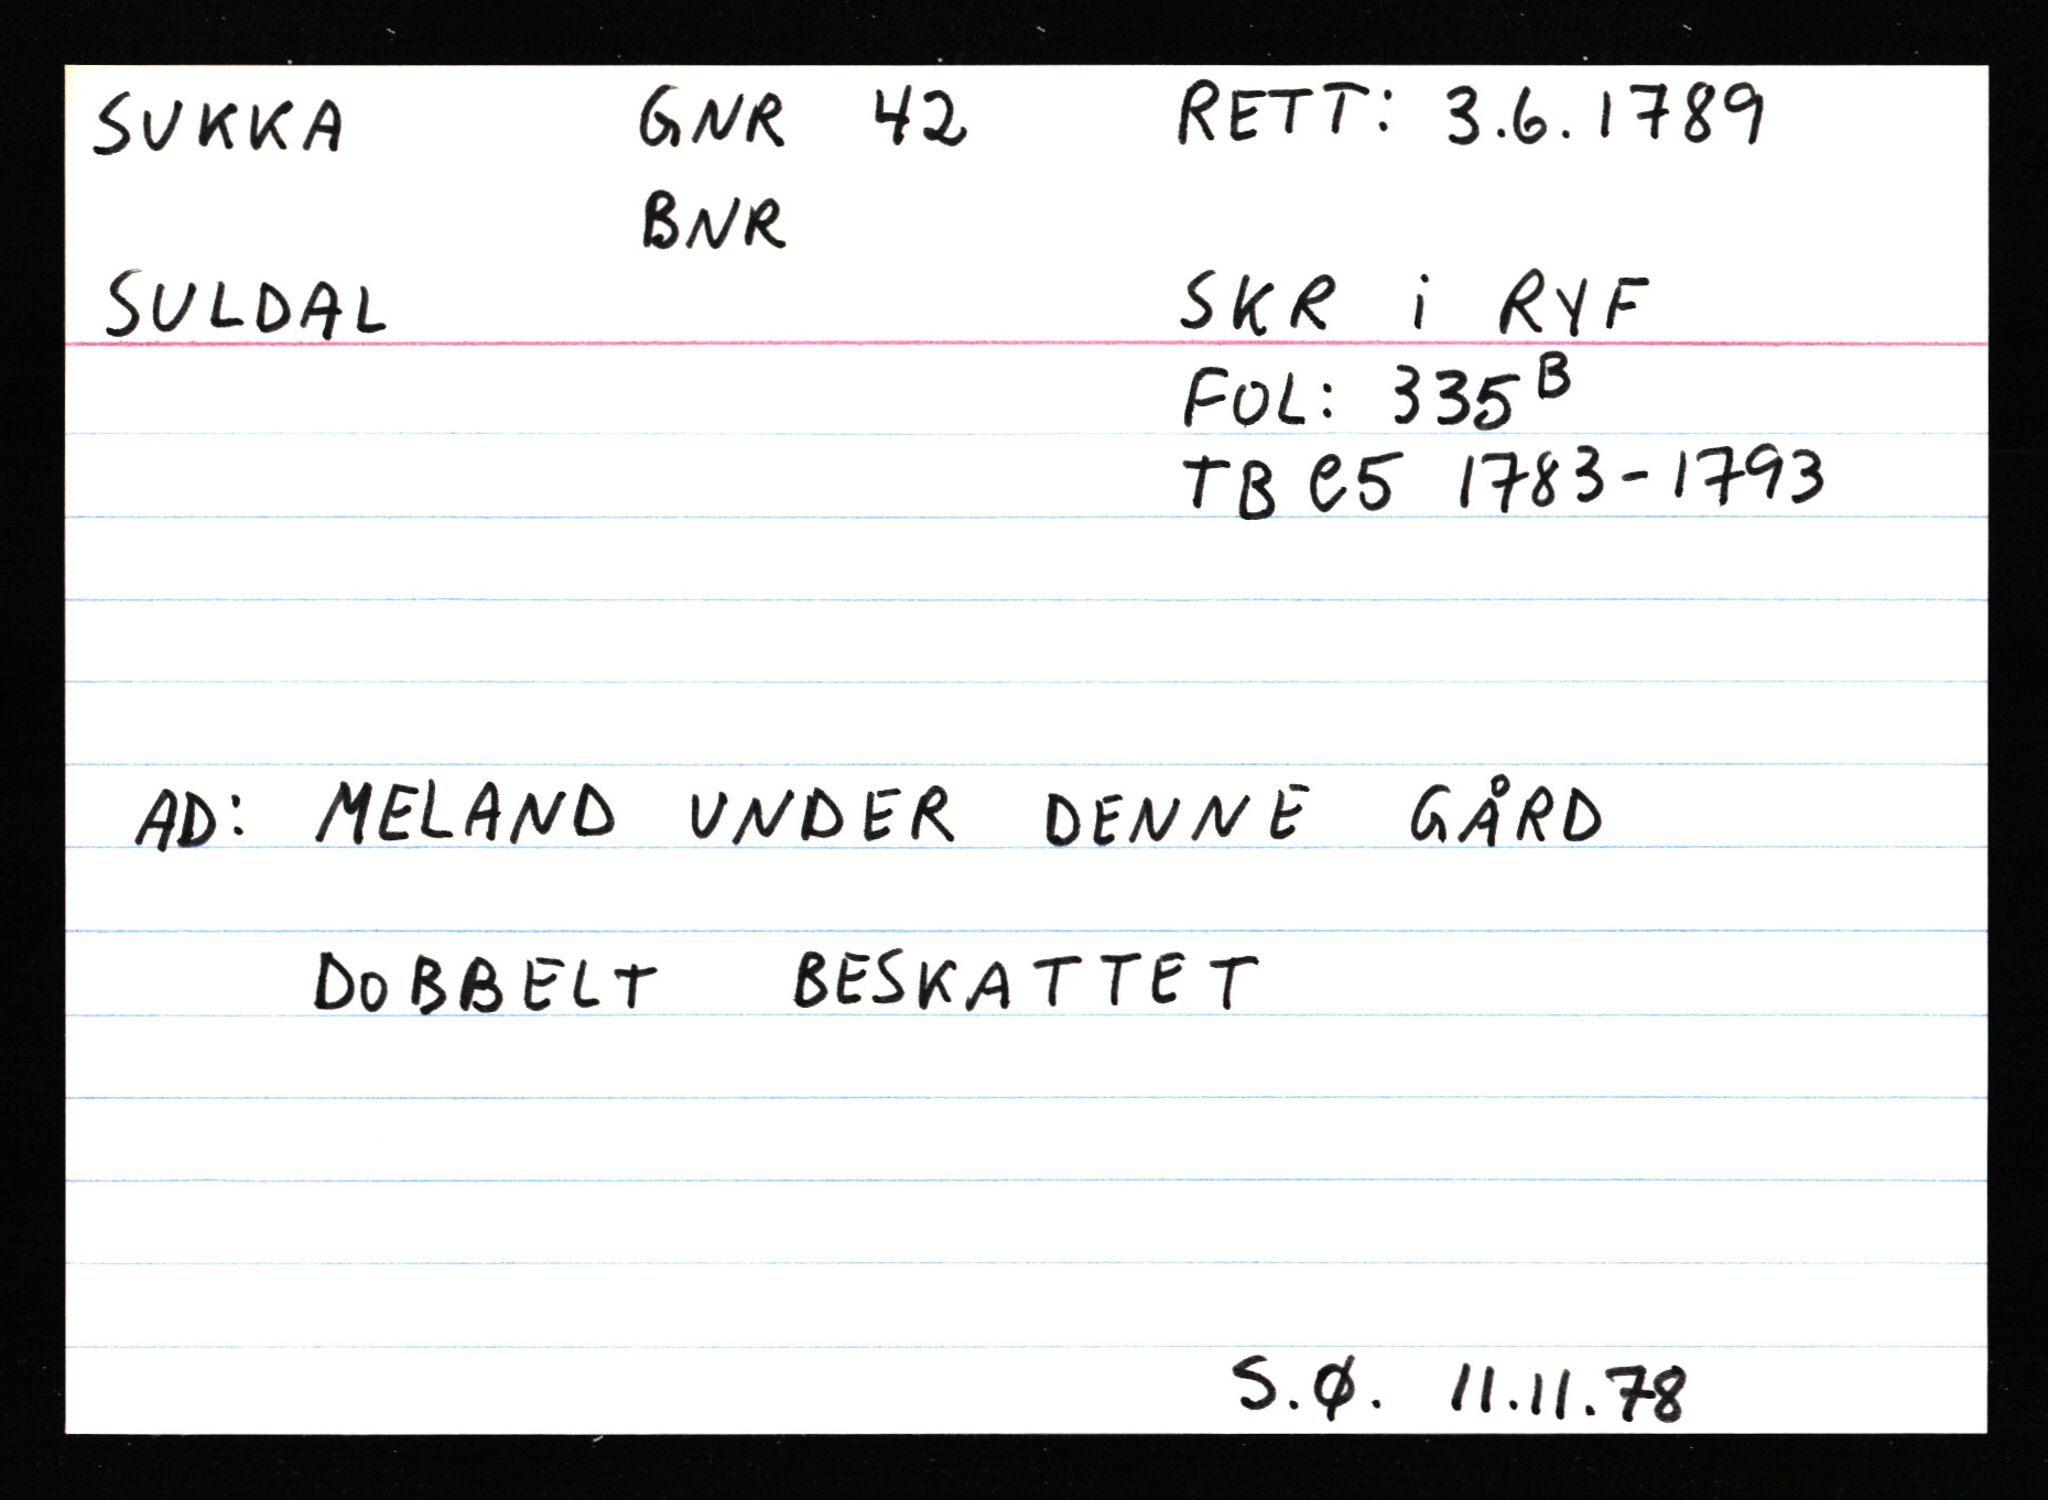 SUKKA GNR 42 RETT: 3.6.1789
BNR
SULDAL SKR i RYF
FOL: 335B
TB C5 1783-1793
AD: MELAND UNDER DENNE GÅRD
DOBBELT BESKATTET
S.Ø. 11.11.78